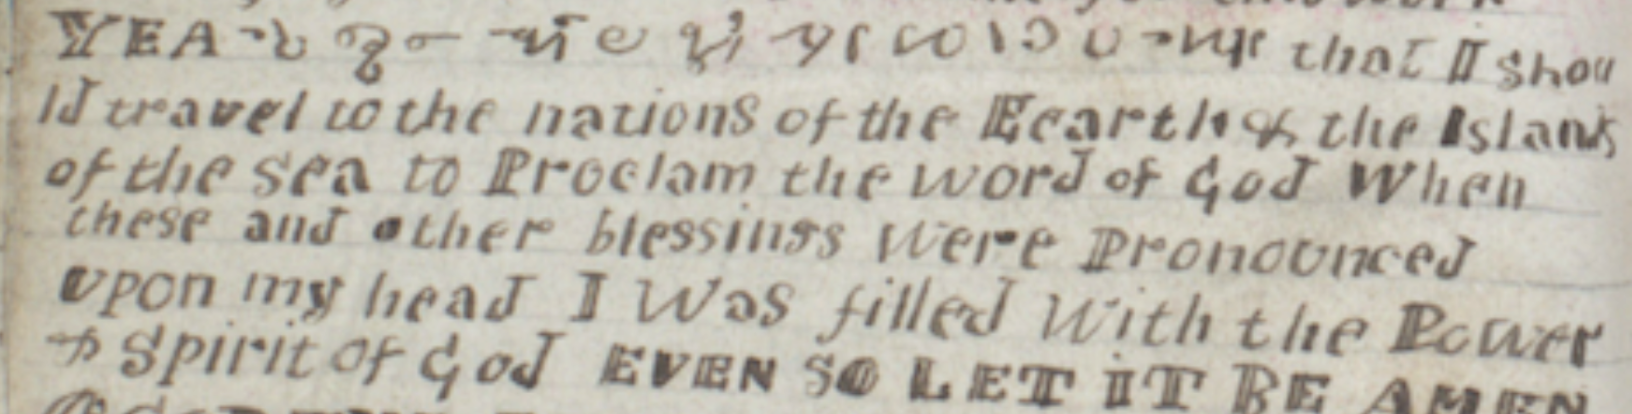 YEA that I shou
ld travel to the nations of the Eearth & the Islands
of the sea to Proclam the word of God When
these and other blessings were Pronounced
upon my head I Was filled With the Power
& Spirit of God EVEN SO LET IT BE AMEN